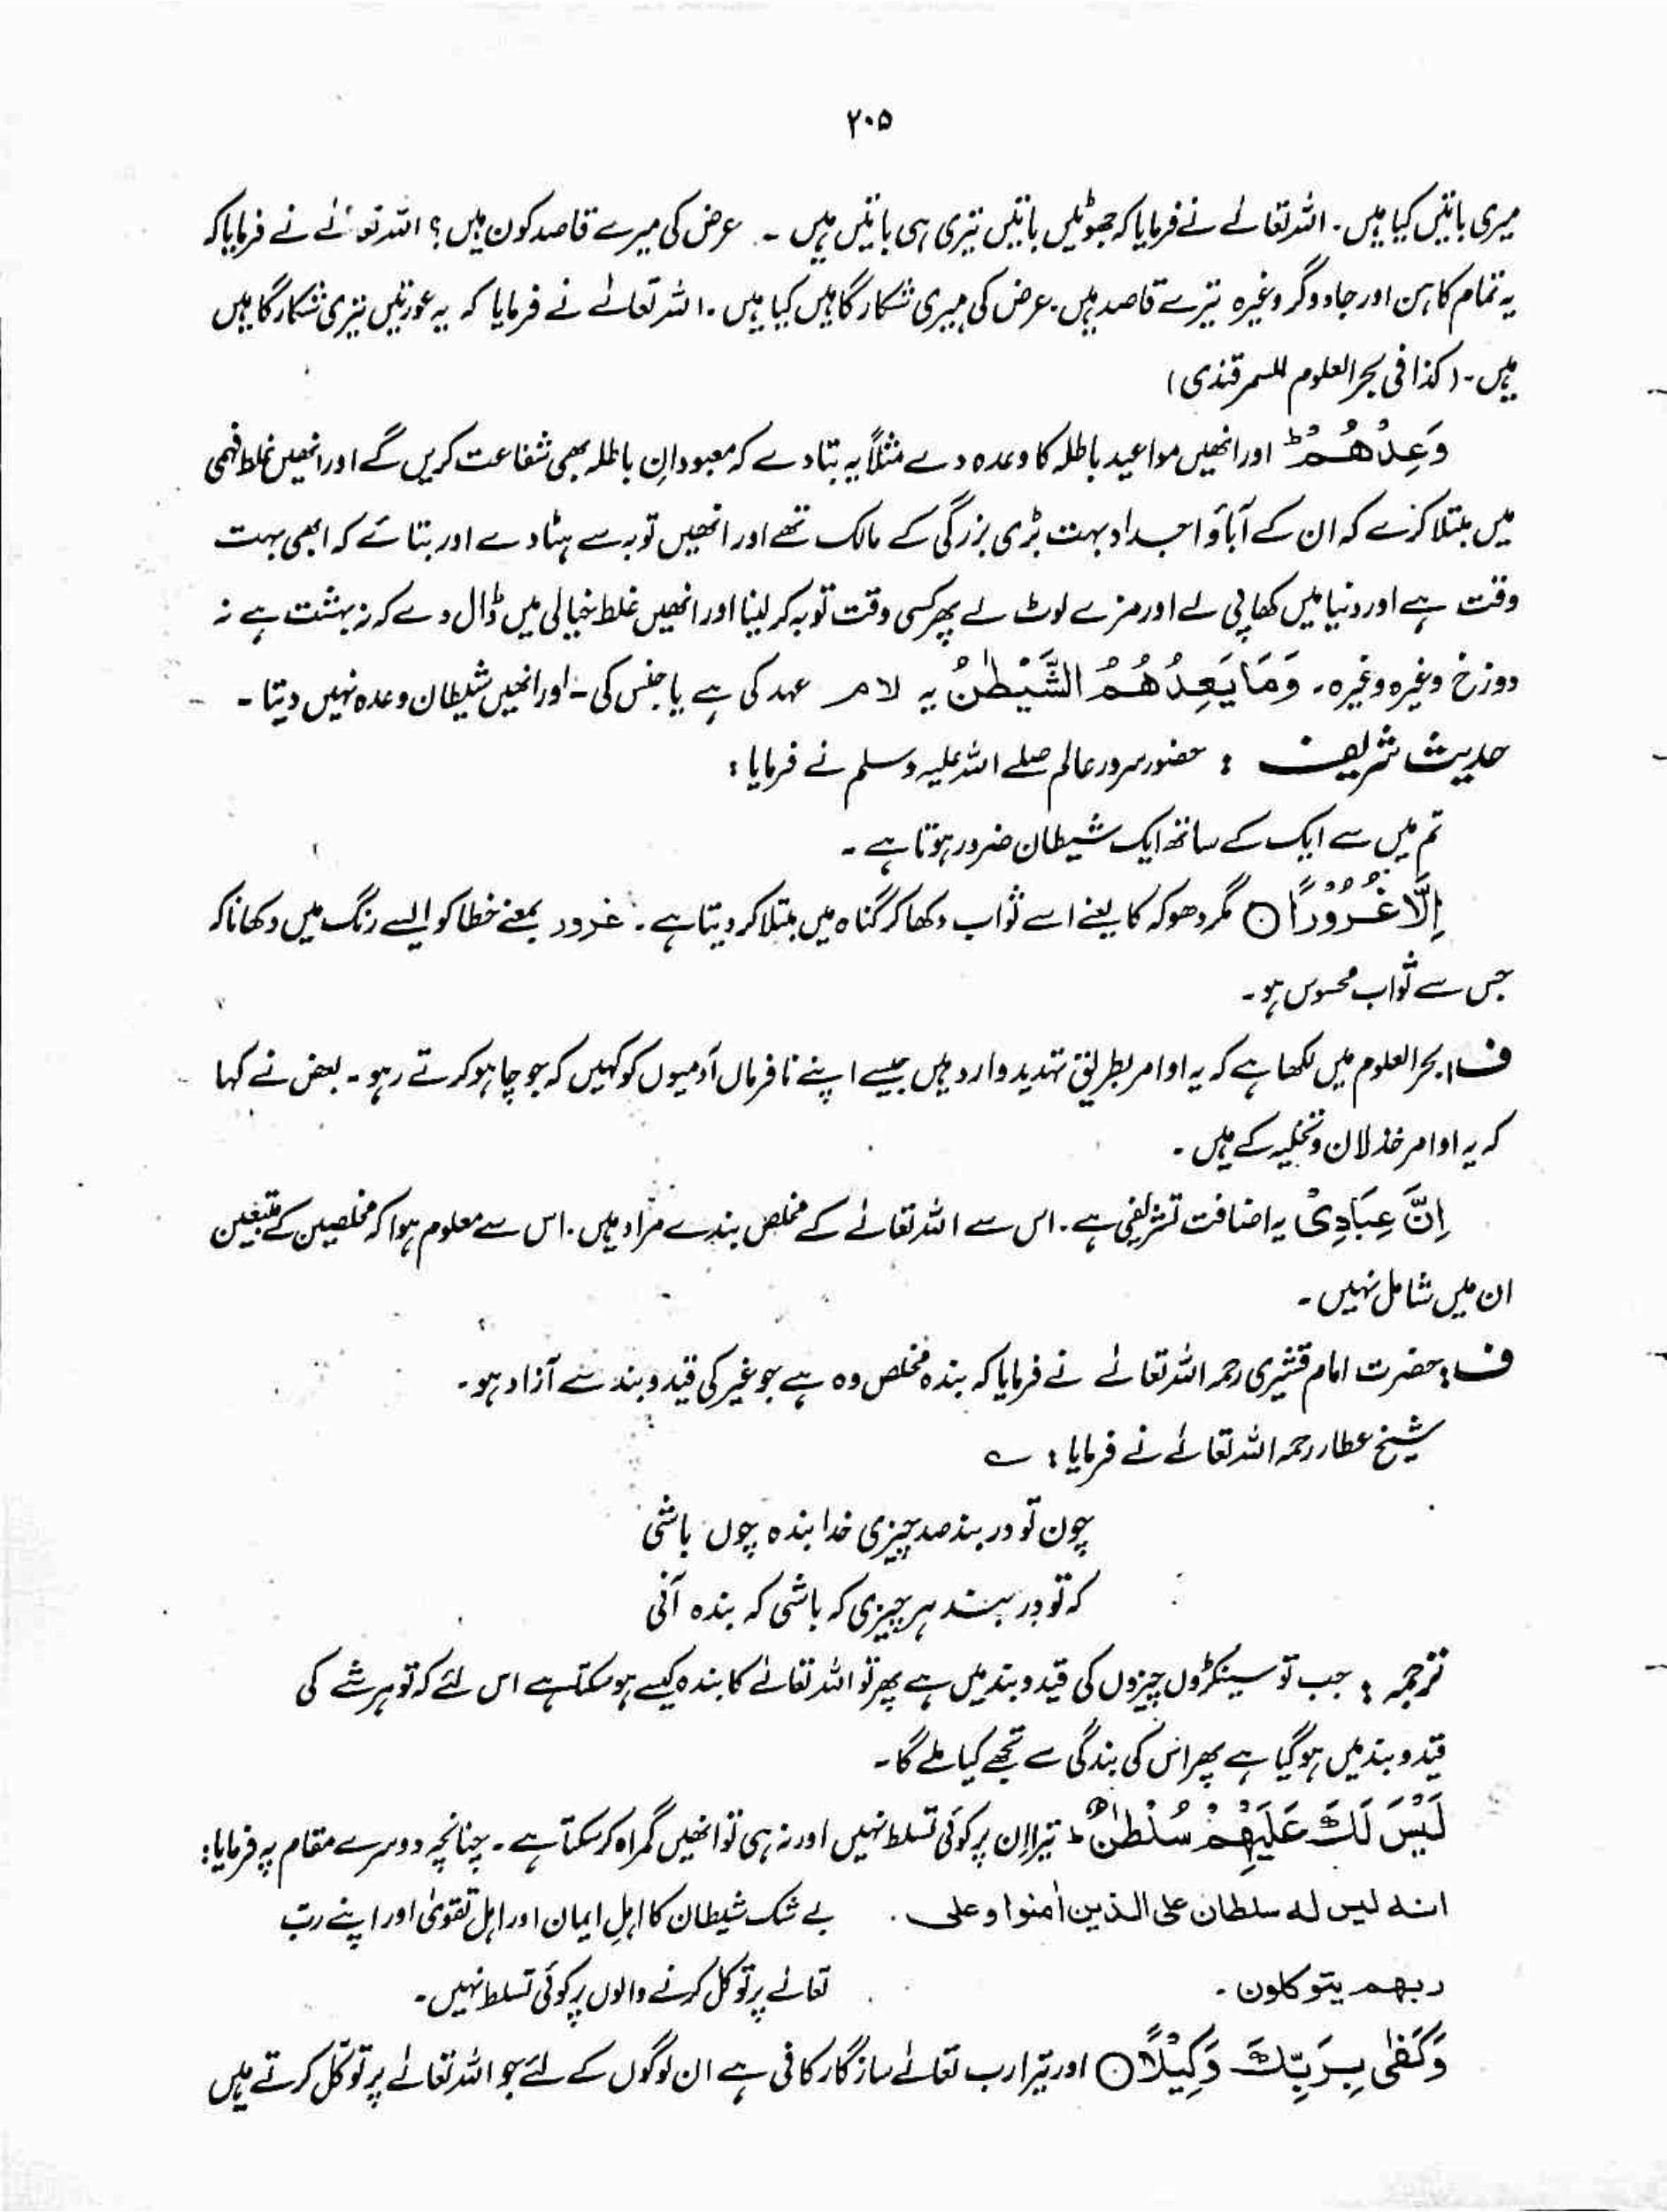 ۲۰۵
میری باتیں کیا ہیں۔ اللہ تعالےٰ نے فرمایا کہ جھوٹیں باتیں تیری ہی باتیں ہیں ۔ عرض کی میرے قاصد کون ہیں؟ اللہ تعالےٰ نے فرمایا کہ
یہ تمام کاہن اور جادوگر وغیرہ تیرے قاصد ہیں۔ عرض کی میری شکار گاہیں کیا ہیں۔ اللہ تعالےٰ نے فرمایا کہ یہ عورتیں تیری شکار گاہیں
ہیں۔ (کذا فی بحر العلوم للسمرقندی)
وَعِدْهُمْ ؕ اور انھیں مواعید باطلہ کا وعدہ دے مثلاً یہ بتا دے کہ معبودانِ باطلہ بھی شفاعت کریں گے اور انھیں غلط فہمی
میں مبتلا کرے کہ ان کے آباؤ اجداد بہت بڑی بزرگی کے مالک تھے اور انھیں توبہ سے ہٹا دے اور بتائے کہ ابھی بہت
وقت ہے اور دنیا میں کھا پی لے اور مزے لوٹ لے پھر کسی وقت توبہ کر لینا اور انھیں غلط خیالی میں ڈال دے کہ نہ بہشت ہے نہ
دوزخ وغیرہ وغیرہ۔ وَمَا يَعِدُهُمُ الشَّيْطٰنُ یہ لام عہد کی ہے یا جنس کی ۔ اور انھیں شیطان وعدہ نہیں دیتا ۔
حدیث شریف : حضور سرور عالم صلے اللہ علیہ وسلم نے فرمایا :
تم میں سے ایک کے ساتھ ایک شیطان ضرور ہوتا ہے ۔
اِلَّا غُرُوْرًا ○ مگر دھوکہ کا یعنے اسے ثواب دکھا کر گناہ میں مبتلا کر دیتا ہے ۔ غرور بمعنے خطا کو ایسے رنگ میں دکھانا کہ
جس سے ثواب محسوس ہو۔
ف : بحر العلوم میں لکھا ہے کہ یہ اوامر بطریق تہدید وارد ہیں جیسے اپنے نافرمان آدمیوں کو کہیں کہ جو چاہو کرتے رہو۔ بعض نے کہا
کہ یہ اوامر خذلان و تخلیہ کے ہیں ۔
اِنَّ عِبَادِیْ یہ اضافت تشریفی ہے۔ اس سے اللہ تعالےٰ کے مخلص بندے مراد ہیں۔ اس سے معلوم ہوا کہ مخلصین کے متبعین
ان میں شامل نہیں ۔
ف : حضرت امام قشیری رحمہ اللہ تعالےٰ نے فرمایا کہ بندہ مخلص وہ ہے جو غیر کی قید و بند سے آزاد ہو۔
شیخ عطار رحمہ اللہ تعالےٰ نے فرمایا : ؎
چون تو در بند صد چیزی خدا بندہ چوں باشی
کہ تو در بند ہر چیزی کہ باشی کہ بندہ آنی
ترجمہ : جب تو سینکڑوں چیزوں کی قید و بند میں ہے پھر تو اللہ تعالےٰ کا بندہ کیسے ہو سکتا ہے اس لئے کہ تو ہر شے کی
قید و بند میں ہو گیا ہے پھر اس کی بندگی سے تجھے کیا ملے گا۔
لَيْسَ لَكَ عَلَيْهِمْ سُلْطٰنٌ ؕ تیرا ان پر کوئی تسلط نہیں اور نہ ہی تو انھیں گمراہ کر سکتا ہے ۔ چنانچہ دوسرے مقام پہ فرمایا:
انه ليس له سلطان على الذين اٰمنوا وعلى . بے شک شیطان کا اہلِ ایمان اور اہلِ تقویٰ اور اپنے ربّ
ربهم يتوكلون ۔ تعالےٰ پر توکل کرنے والوں پر کوئی تسلط نہیں۔
وَكَفٰى بِرَبِّكَ وَكِيْلًا ○ اور تیرا رب تعالےٰ سازگار کافی ہے ان لوگوں کے لئے جو اللہ تعالےٰ پر توکّل کرتے ہیں